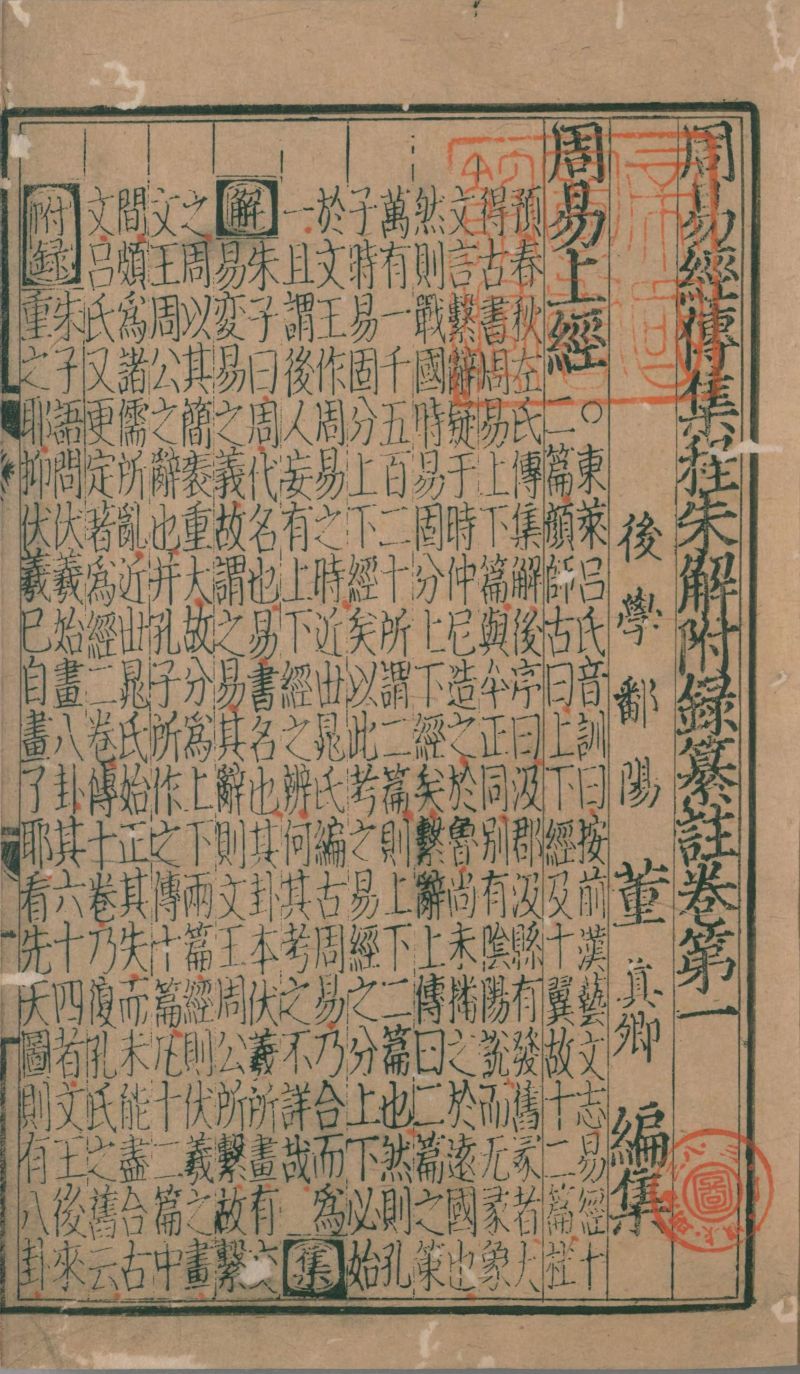 周易經傳集程朱解附録纂註卷第一
後學鄱陽董真卿編集
周易上經
○東萊呂氏音訓曰按前漢藝文志易經十
二篇顔師古曰上下經及十翼故十二篇杜
預春秋左氏傳集解後序曰汲郡汲縣有發舊冢者大
得古書周易上下篇與今正同別有陰陽說而无彖象
文言繫辭疑于時仲尼造之於魯尚未播之於遠國也
然則戰國時易固分上下經矣繫辭上傳曰二篇之策
萬有一千五百二十所謂二篇則上下二篇也然則孔
子時易固分上下經矣以此考之易經之分上下必始
於文王作周易之時近世晁氏編古周易乃合而為
一且謂後人妄有上下經之辨何其考之不詳哉集
解朱子曰周代名也易書名也其卦本伏羲所畫有交
易変易之義故謂之易其辭則文王周公所繫故繫
之周以其簡袠重大故分爲上下兩篇經則伏羲之畫
文王周公之辭也并孔子所作之傳十篇凡十二篇中
間頗爲諸儒所亂近世晁氏始正其失而未能盡合古
文呂氏又更定著爲經二卷傳十卷乃復孔氏之舊云
附録朱子語問伏羲始畫八卦其六十四者文王後來
重之耶抑伏羲已自畫了耶看先天圖則有八卦